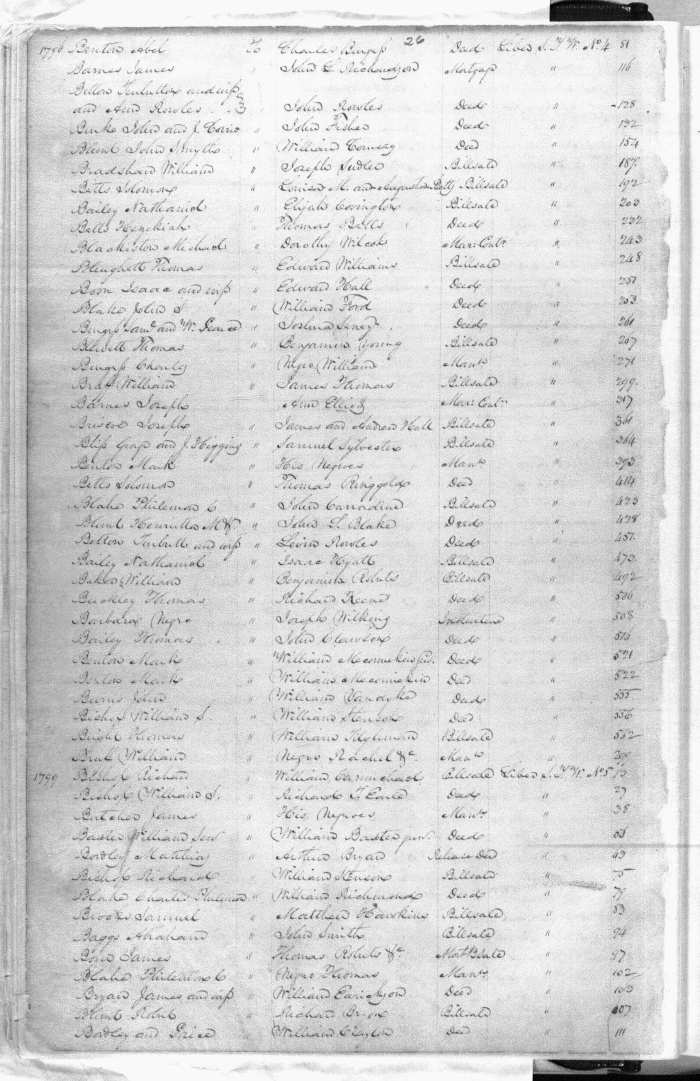 26
1796 Benton Abel To Charles Burgess Deed Liber S. T. W. No 4 81
Barnes James " John L. Richardson Mortgage " 116
Betton Turbutton and wife
and Ann Rowles " John Rowles Deed " 128
Burke John and J. " John Fisher Deed " 132
Blunt John Smyth " William Deed " 154
Bradshaw William " Joseph Sudler Billsale " 187
Betts Solomon " Louisa M. and Augusta Betts Billsale " 192
Bailey Nathaniel " Elijah Covington Billsale " 203
Betts Hezekiah " Thomas Betts Deed " 232
Blackiston Michael " Dorothy Wilcox Marr: Contr " 243
Thomas " Edward Williams Billsale " 248
Boon Isaac and wife " Edward Hall Deed " 251
Blake John S. " William Ford Deed " 253
Burgess Saml and W. " Joshua Deed " 261
Thomas " Benjamin Young Billsale " 267
Burgess Charles " Negro William Manr " 271
William " James Thomas Billsale " 299
Barnes Joseph " Ann Elliott Marr: Contr " 317
Briscoe Joseph " James and Andrew Hall Billsale " 361
and J. Higgins " Samuel Sylvester Billsale " 364
Benton Mark " His Negroes Manr " 393
Betts Solomon " Thomas Ringgold Deed " 414
Blake Philemon C " John Carradine Billsale " 423
Blunt Henrietta M &c " John S. Blake Deed " 428
Betton Turbutt and wife " Levin Rowles Deed " 457
Bailey Nathaniel " Isaac Hyatt Billsale " 473
Baker William " Benjamin Roberts Billsale " 492
Buckley Thomas " Richard Keene Deed " 506
Barbara Negro " Joseph Wilkins Indenture " 508
Bailey Thomas " John Clawson Deed " 516
Benton Mark " William Mecomekin Junr. Deed " 521
Benton Mark " William Mecomekin Deed " 522
Burns John " William Vandyke Deed " 555
Bishop William S. " William Henson Deed " 556
Bright Thomas " William Billsale " 562
William " Negro Rachel &c Manr "
1799 Richard " William Carmichael Billsale Liber S. T. W. No 5 18
Bishop William S. " Richard T. Earle Deed " 27
Butcher James " His Negroes Manr " 38
Baxter William Senr " William Baxter junr. Deed "
Bordley Matthias " Arthur Bryan Release Deed " 43
Bishop Richard " William Henson Billsale " 75
Blake Charles Philemon " William Richmond Deed " 79
Brooks Samuel " Matthew Hawkins Billsale " 83
Baggs Abraham " John Smith Billsale " 94
James " Thomas Roberts &c " 97
Blake Philemon C " Negro Thomas Manr " 102
Bryan James and wife " William Deed " 103
Blunt Robert " Richard Billsale " 107
Bordley and Price " William Clayton Deed " 111